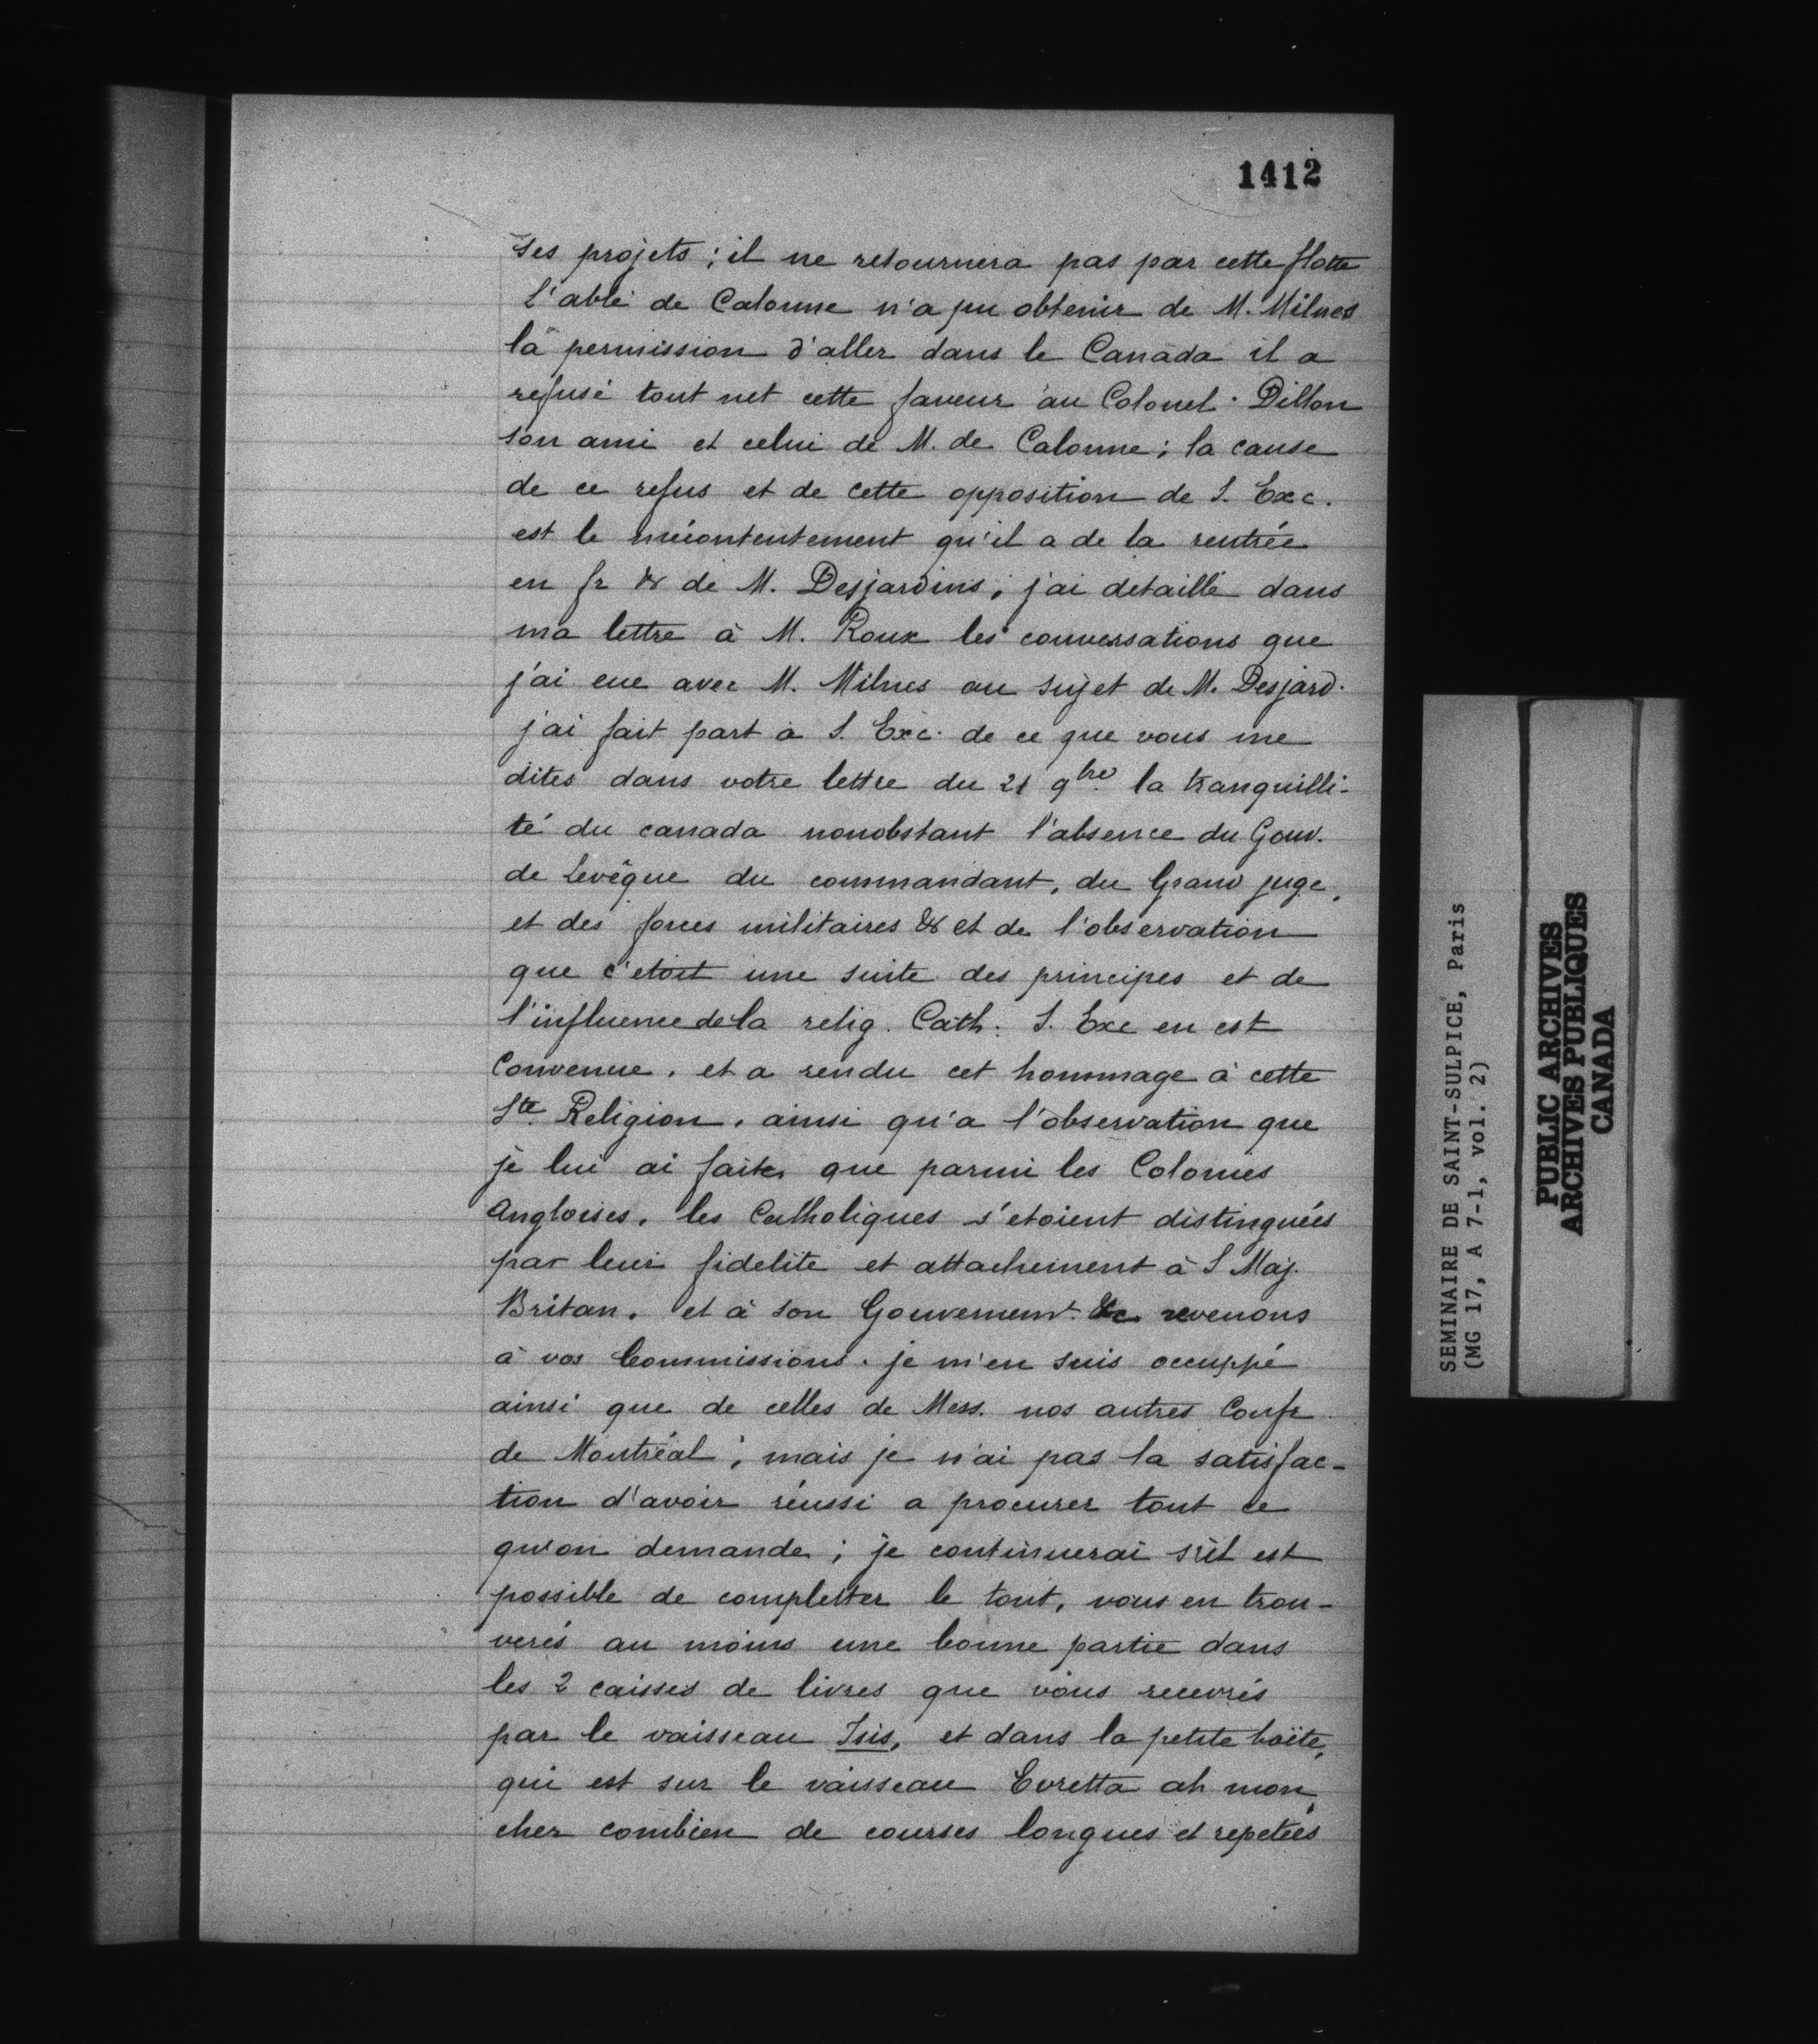 1412
ses projets; il ne retournera pas par cette flotte
l'abbé de Calonne n'a pu obtenir de M. Milnes
la permission d'aller dans le Canada il a
refusé tout net cette faveur au Colonel Dillon
son ami et celui de M. de Calonne; la cause
de ce refus et de cette opposition de S. Exc.
est le mécontentement qu'il a de la rentrée
en fr & de M. Desjardins; j'ai detaillé dans
ma lettre à M. Roux les conversations que
j'ai eue avec M. Milnes au sujet de M. Desjard.
j'ai fait part à S. Exc. de ce que vous me
dites dans votre lettre du 21 9bre la tranquilli-
té du canada nonobstant l'absence du Gouv.
de Levêque du commandant, du Grand juge,
et des forces militaires & et de l'observation
que c'etoit une suite des principes et de
l'influence de la relig. Cath. S. Exc en est
Convenue, et a rendu cet hommage à cette
Ste Religion, ainsi qu'a l'observation que
je lui ai faite, que parmi les Colonies
Angloises, les Catholiques s'etoient distingués
par leur fidelite et attachement à S Maj.
Britan. et à son Gouvernemt. &c. revenons
à vos Commissions. je m'en suis occuppé
ainsi que de celles de Mess. nos autres Confr.
de Montréal; mais je n'ai pas la satisfac-
tion d'avoir réussi a procurer tout ce
qu'on demande; je continuerai s'il est
possible de completter le tout, vous en trou-
verés au moins une bonne partie dans
les 2 caisses de livres que vous recevrés
par le vaisseau Isis, et dans la petite boïte,
qui est sur le vaisseau Evretta ah mon,
cher combien de courses longues et repetées
SEMINAIRE DE SAINT-SULPICE, Paris
(MG 17, A 7-1, vol. 2)
PUBLIC ARCHIVES
ARCHIVES PUBLIQUES
CANADA